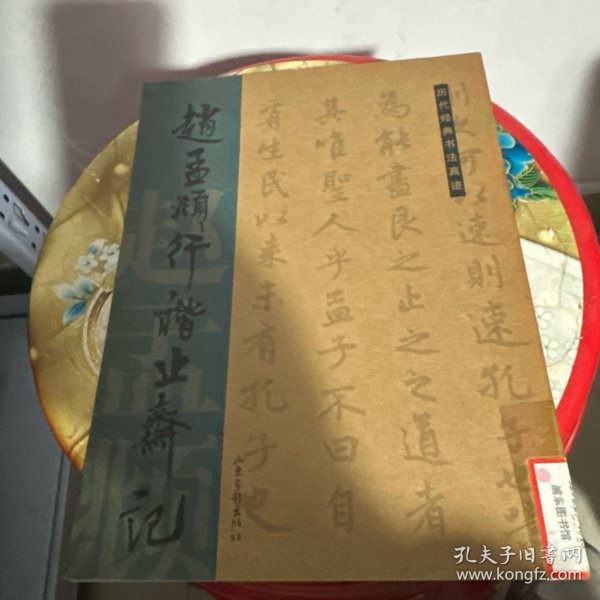 历代经典书法真迹
趙孟頫行楷止齋記
赵孟頫
则久可以速則速孔子也
為能盡艮之止之之道者
其唯聖人乎孟子不曰自
有生民以来未有孔子也
山东画报出版社
浦东图书馆
孔夫子旧书网
www.kongfz.com